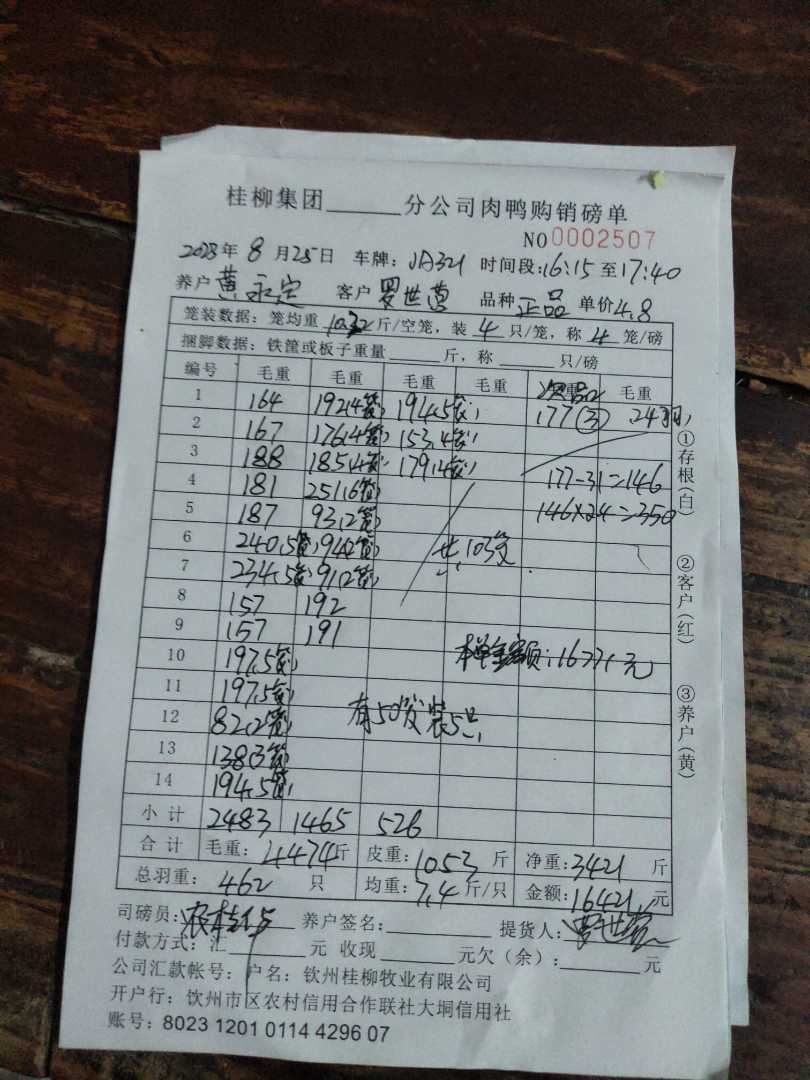 桂柳集团______分公司肉鸭购销磅单
NO 0002507
2023年 8月25日 车牌: JA321 时间段:16:15至17:40
养户 黄永定 客户 罗世 品种 正品 单价4.8
笼装数据: 笼均重 10.32 斤/空笼, 装 4 只/笼, 称 4 笼/磅
捆脚数据: 铁筐或板子重量______斤, 称______只/磅
编号 毛重 毛重 毛重 毛重 次品 毛重
1 164 192(4笼) 194(5笼) 177(3) 24羽
2 167 176(4笼) 153(4笼)
3 188 185(4笼) 179(4笼) 177-31=146
4 181 251(6笼) 146×2.4=350
5 187 93(2笼)
6 240(5笼) 94(2笼) 共103笼
7 234(5笼) 91(2笼)
8 157 192
9 157 191 本单金额:16771元
10 197(5笼)
11 197(5笼)
12 82(2笼) 有50笼装5只
13 138(3笼)
14 194(5笼)
小计 2483 1465 526
合计 毛重: 4474斤 皮重: 1053斤 净重: 3421斤
总羽重: 462 只 均重: 7.4斤/只 金额: 16421元
司磅员: 养户签名:______ 提货人: 罗世
付款方式: 汇______元 收现______元欠(余):______元
公司汇款帐号: 户名: 钦州桂柳牧业有限公司
开户行: 钦州市区农村信用合作联社大垌信用社
账号: 8023 1201 0114 4296 07
①存根(白)
②客户(红)
③养户(黄)